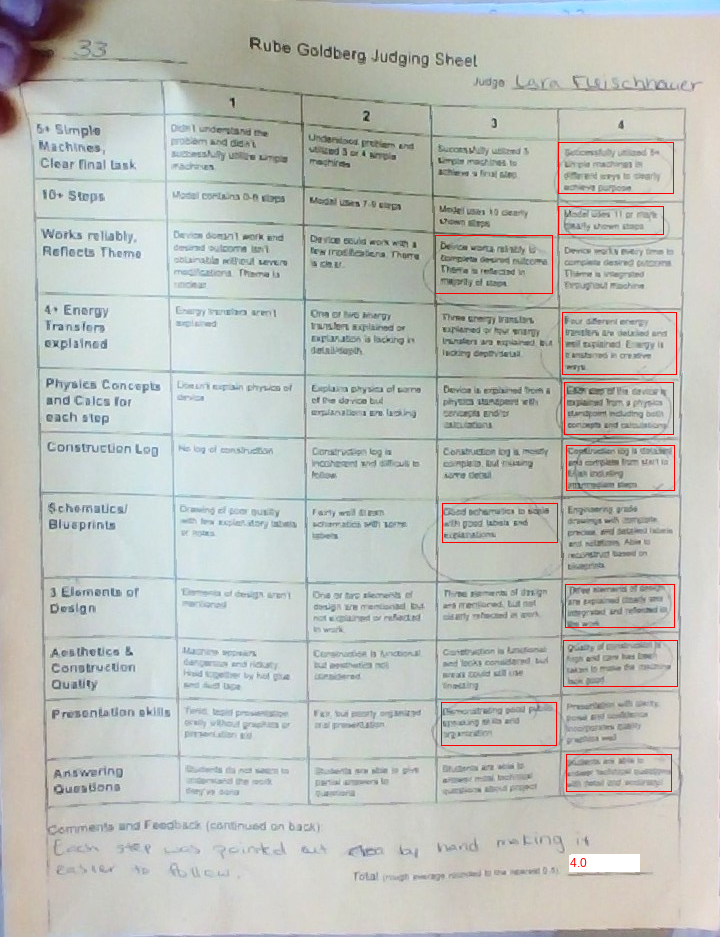 33
Rube Goldberg Judging Sheet
Judge Lara Fleischhauer
1 2 3 4
5+ Simple Machines, Clear final task
Didn't understand the problem and didn't successfully utilize simple machines.
Understood problem and utilized 3 or 4 simple machines
Successfully utilized 5 simple machines to achieve a final step.
Successfully utilized 5+ simple machines in different ways to clearly achieve purpose
10+ Steps
Model contains 0-6 steps
Model uses 7-9 steps
Model uses 10 clearly shown steps
Model uses 11 or more clearly shown steps
Works reliably, Reflects Theme
Device doesn't work and desired outcome isn't obtainable without severe modifications. Theme is unclear
Device could work with a few modifications. Theme is clear.
Device works reliably to complete desired outcome. Theme is reflected in majority of steps
Device works every time to complete desired outcome. Theme is integrated throughout machine
4+ Energy Transfers explained
Energy transfers aren't explained
One or two energy transfers explained or explanation is lacking in detail/depth.
Three energy transfers explained or four energy transfers are explained, but lacking depth/detail.
Four different energy transfers are detailed and well explained. Energy is transferred in creative ways.
Physics Concepts and Calcs for each step
Doesn't explain physics of device
Explains physics of some of the device but explanations are lacking
Device is explained from a physics standpoint with concepts and/or calculations
Each step of the device is explained from a physics standpoint including both concepts and calculations
Construction Log
No log of construction
Construction log is incoherent and difficult to follow.
Construction log is mostly complete, but missing some detail
Construction log is detailed and complete from start to finish including intermediate steps
Schematics/ Blueprints
Drawing of poor quality with few explanatory labels or notes
Fairly well drawn schematics with some labels
Good schematics to scale with good labels and explanations
Engineering grade drawings with complete, precise, and detailed labels and notations. Able to reconstruct based on blueprints
3 Elements of Design
Elements of design aren't mentioned
One or two elements of design are mentioned, but not explained or reflected in work
Three elements of design are mentioned, but not clearly reflected in work
Three elements of design are explained clearly and integrated and reflected in the work
Aesthetics & Construction Quality
Machine appears dangerous and rickety. Held together by hot glue and duct tape
Construction is functional, but aesthetics not considered
Construction is functional and looks considered, but areas could still use finessing
Quality of construction is high and care has been taken to make the machine look good
Presentation skills
Timid, tepid presentation orally without graphics or presentation aid
Fair, but poorly organized oral presentation
Demonstrating good public speaking skills and organization
Presentation with clarity, poise and confidence incorporates quality graphics well
Answering Questions
Students do not seem to understand the work they've done
Students are able to give partial answers to questions
Students are able to answer most technical questions about project
Students are able to answer technical questions with detail and accuracy
Comments and Feedback (continued on back):
Each step was pointed out by hand making it
easier to follow.
Total (rough average rounded to the nearest 0.5) 4.0